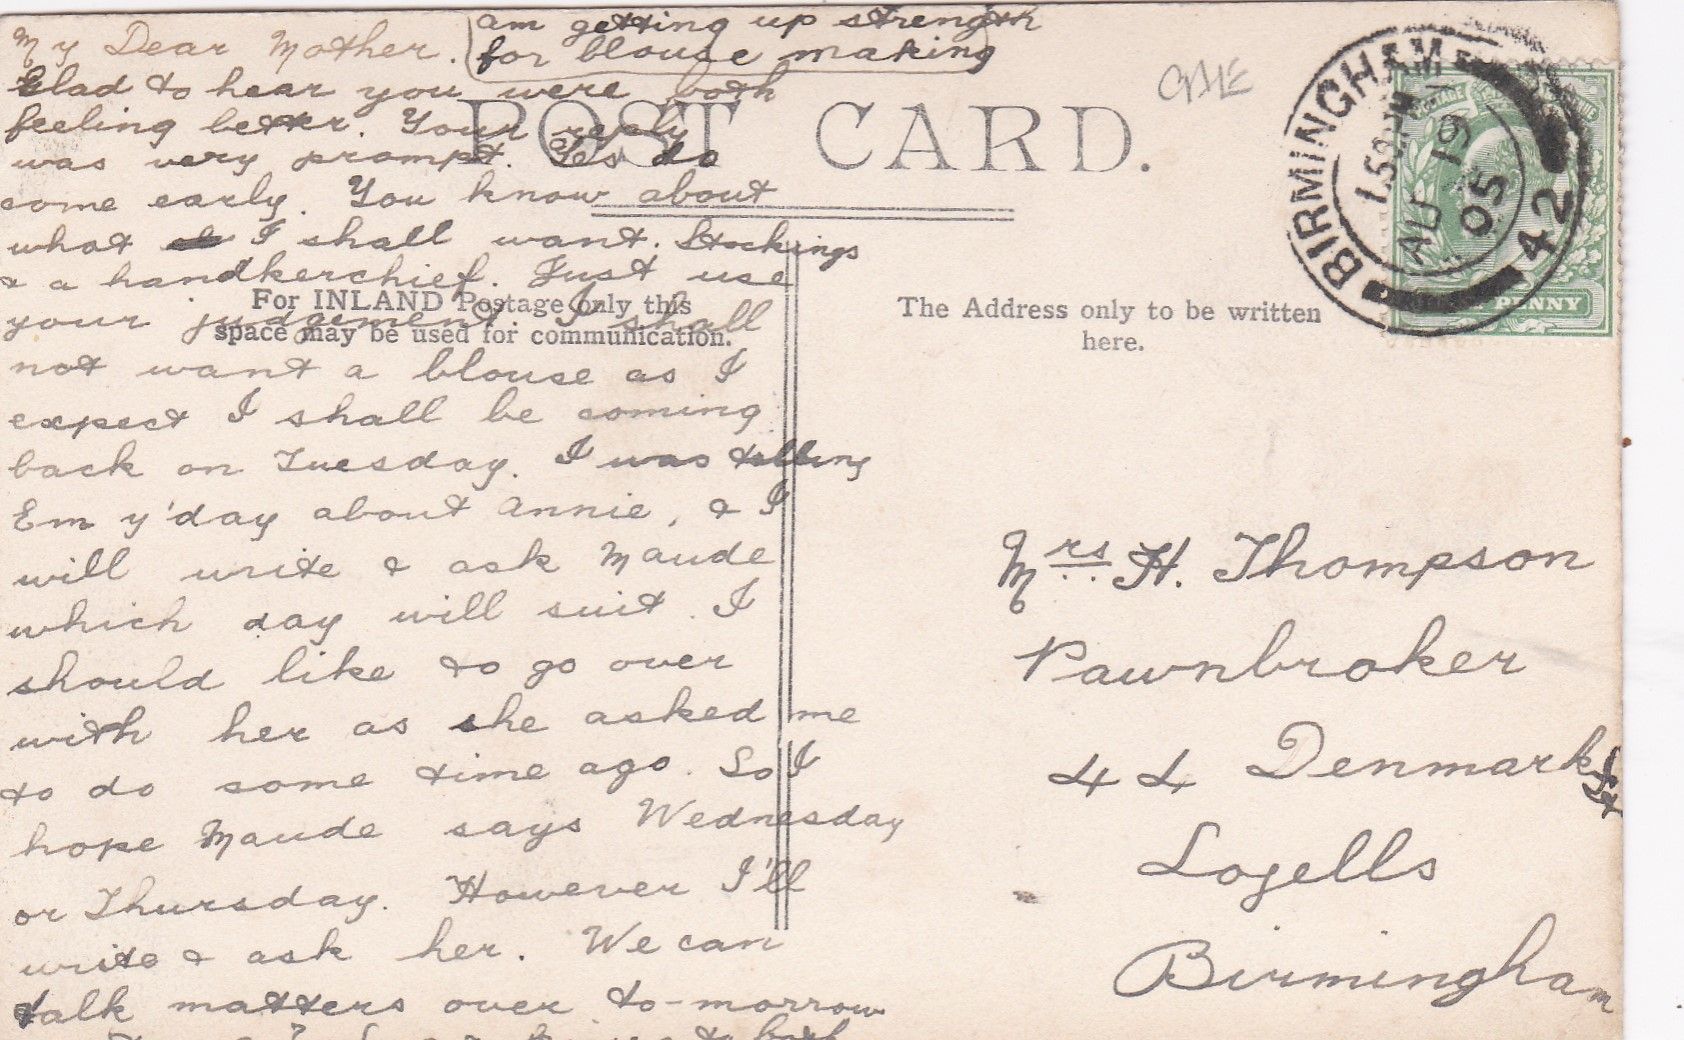 My Dear Mother.
am getting up strength
for blouse making
Glad to hear you were both
feeling better. Your reply
was very prompt. Yes do
come early. You know about
what I shall want. Stockings
& a handkerchief. Just use
your judgement. I shall
not want a blouse as I
expect I shall be coming
back on Tuesday. I was telling
Em y'day about Annie, & I
will write & ask Maude
which day will suit. I
should like to go over
with her as she asked me
to do some time ago. So I
hope Maude says Wednesday
or Thursday. However I'll
write & ask her. We can
talk matters over to-morrow
to both
POST CARD.
For INLAND Postage only this
space may be used for communication.
The Address only to be written
here.
BIRMINGHAM
1.50PM
AU 19
05
42
PENNY
Mrs H. Thompson
Pawnbroker
44 Denmark St
Lozells
Birmingham